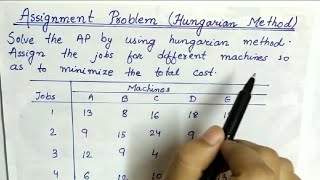 Assignment Problem (Hungarian Method)
Solve the AP by using hungarian method.
Assign the jobs for different machines so
as to minimize the total cost.
Machines
Jobs A B C D E
1 13 8 16 18
2 9 15 24 9
3 12 9 4
4 6 12